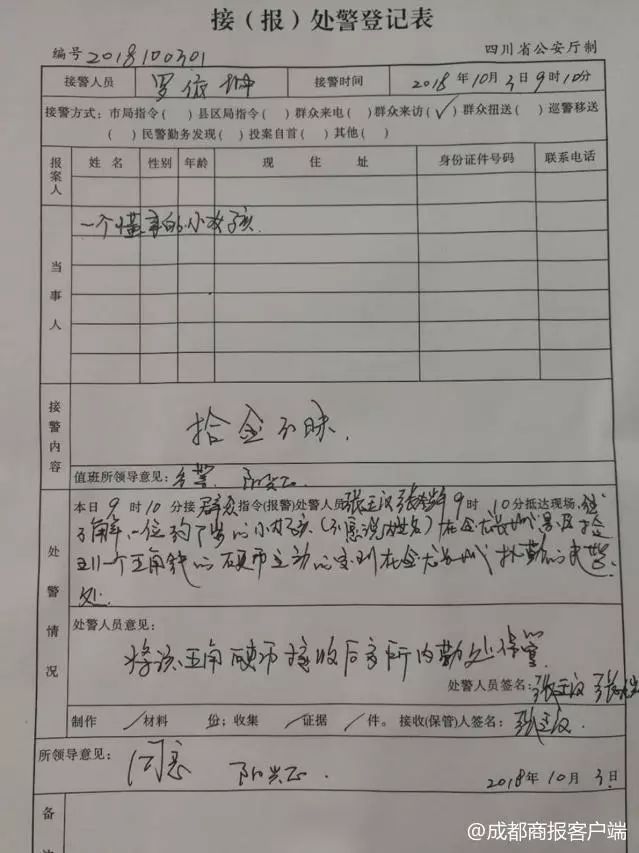 接（报）处警登记表
编号2018100301 四川省公安厅制
接警人员 罗依 接警时间 2018年10月3日9时10分
接警方式：市局指令( )县区局指令( )群众来电( )群众来访(✓)群众扭送( )巡警移送
( )民警勤务发现( )投案自首( )其他( )
报案人 姓名 性别 年龄 现住址 身份证件号码 联系电话
当事人 一个懂事的小女孩.
接警内容 拾金不昧.
值班所领导意见：出警.
处警情况 本日9时10分接群众指令(报警)处警人员张正汉 9时10分抵达现场,经
了解,一位约7岁的小女孩(不愿说出姓名)在金龙长城景区捡
到一个五角钱的硬币主动的交到在金龙长城执勤的民警
处.
处警人员意见：
将该五角硬币接收后交所内勤处保管
处警人员签名：张正汉
制作 / 材料 份；收集 / 证据 / 件。接收(保管)人签名：张正汉
所领导意见：
同意
2018年10月3日
备
@成都商报客户端